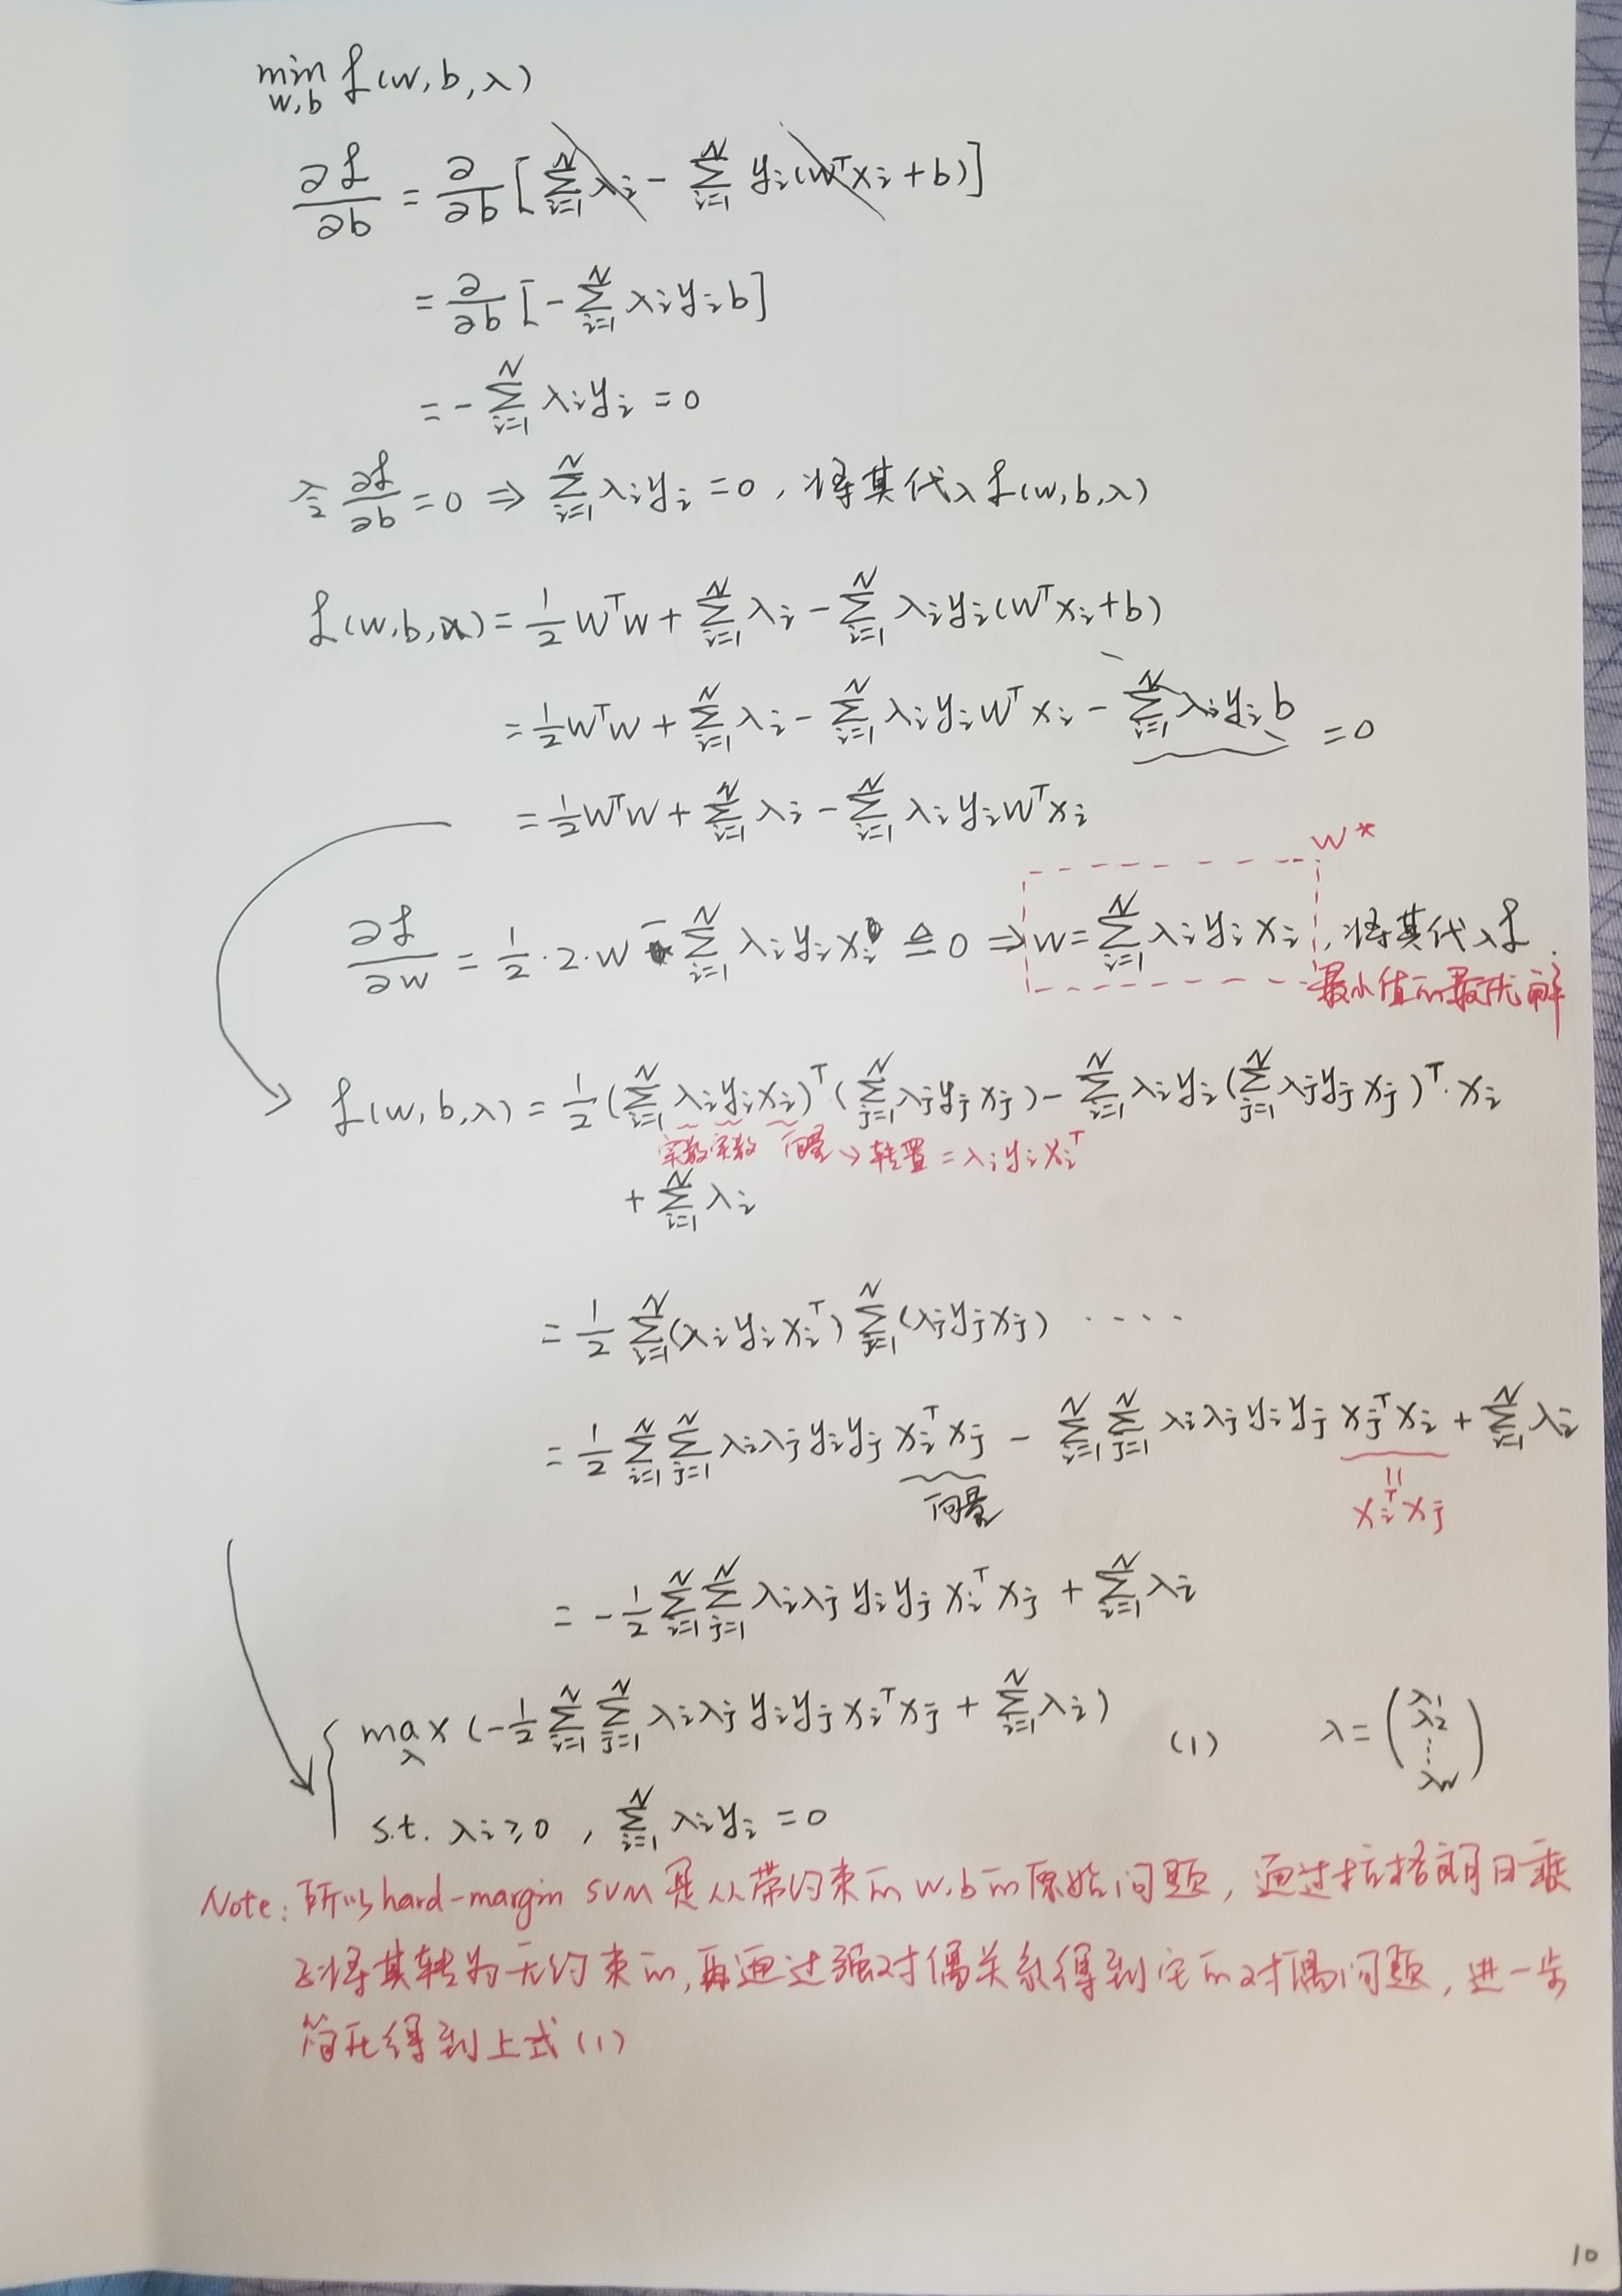 min L(w,b,λ)
w,b
∂L/∂b = ∂/∂b [∑_{i=1}^{N} λi - ∑_{i=1}^{N} yi(w^T xi + b)]
= ∂/∂b [-∑_{i=1}^{N} λi yi b]
= -∑_{i=1}^{N} λi yi = 0
令 ∂L/∂b = 0 ⇒ ∑_{i=1}^{N} λi yi = 0, 将其代入 L(w,b,λ)
L(w,b,λ) = 1/2 w^T w + ∑_{i=1}^{N} λi - ∑_{i=1}^{N} λi yi (w^T xi + b)
= 1/2 w^T w + ∑_{i=1}^{N} λi - ∑_{i=1}^{N} λi yi w^T xi - ∑_{i=1}^{N} λi yi b = 0
= 1/2 w^T w + ∑_{i=1}^{N} λi - ∑_{i=1}^{N} λi yi w^T xi
w*
∂L/∂w = 1/2 · 2 · w - ∑_{i=1}^{N} λi yi xi ≜ 0 ⇒ w = ∑_{i=1}^{N} λi yi xi, 将其代入 L.
最小值的最优解
L(w,b,λ) = 1/2 (∑_{i=1}^{N} λi yi xi)^T · (∑_{j=1}^{N} λj yj xj) - ∑_{i=1}^{N} λi yi (∑_{j=1}^{N} λj yj xj)^T · xi
实数 实数 向量 → 转置 = λi yi xi^T
+ ∑_{i=1}^{N} λi
= 1/2 ∑_{i=1}^{N} (λi yi xi^T) ∑_{j=1}^{N} (λj yj xj) ····
= 1/2 ∑_{i=1}^{N} ∑_{j=1}^{N} λi λj yi yj xi^T xj - ∑_{i=1}^{N} ∑_{j=1}^{N} λi λj yi yj xj^T xi + ∑_{i=1}^{N} λi
向量 = xi^T xj
= -1/2 ∑_{i=1}^{N} ∑_{j=1}^{N} λi λj yi yj xi^T xj + ∑_{i=1}^{N} λi
max_λ (-1/2 ∑_{i=1}^{N} ∑_{j=1}^{N} λi λj yi yj xi^T xj + ∑_{i=1}^{N} λi) (1) λ = (λ1 λ2 ... λN)
s.t. λi ≥ 0, ∑_{i=1}^{N} λi yi = 0
Note: 所以hard-margin SVM是从带约束的w,b的原始问题, 通过拉格朗日乘
子将其转为无约束的, 再通过强对偶关系得到它的对偶问题, 进一步
简化得到上式(1)
10